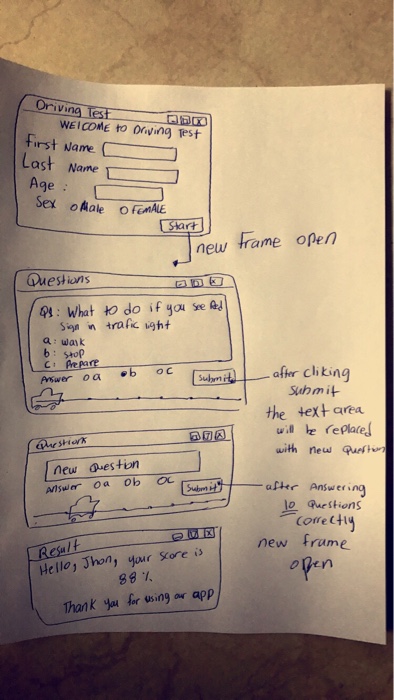 Driving Test
WElCOME to Driving Test
First Name
Last Name
Age :
Sex o Male o FEMALE
Start
new frame open
Questions
Q1: What to do if you see Red
Sign in trafic light
a: walk
b: stop
c: Prepare
Answer o a •b o c
Submit
after cliking
submit
the text area
will be replaced
with new Question
Questions
new Question
Answer o a o b o c
Submit
after Answering
10 Questions
correctly
new frame
open
Result
Hello, Jhon, your score is
88 %
Thank you for using our app